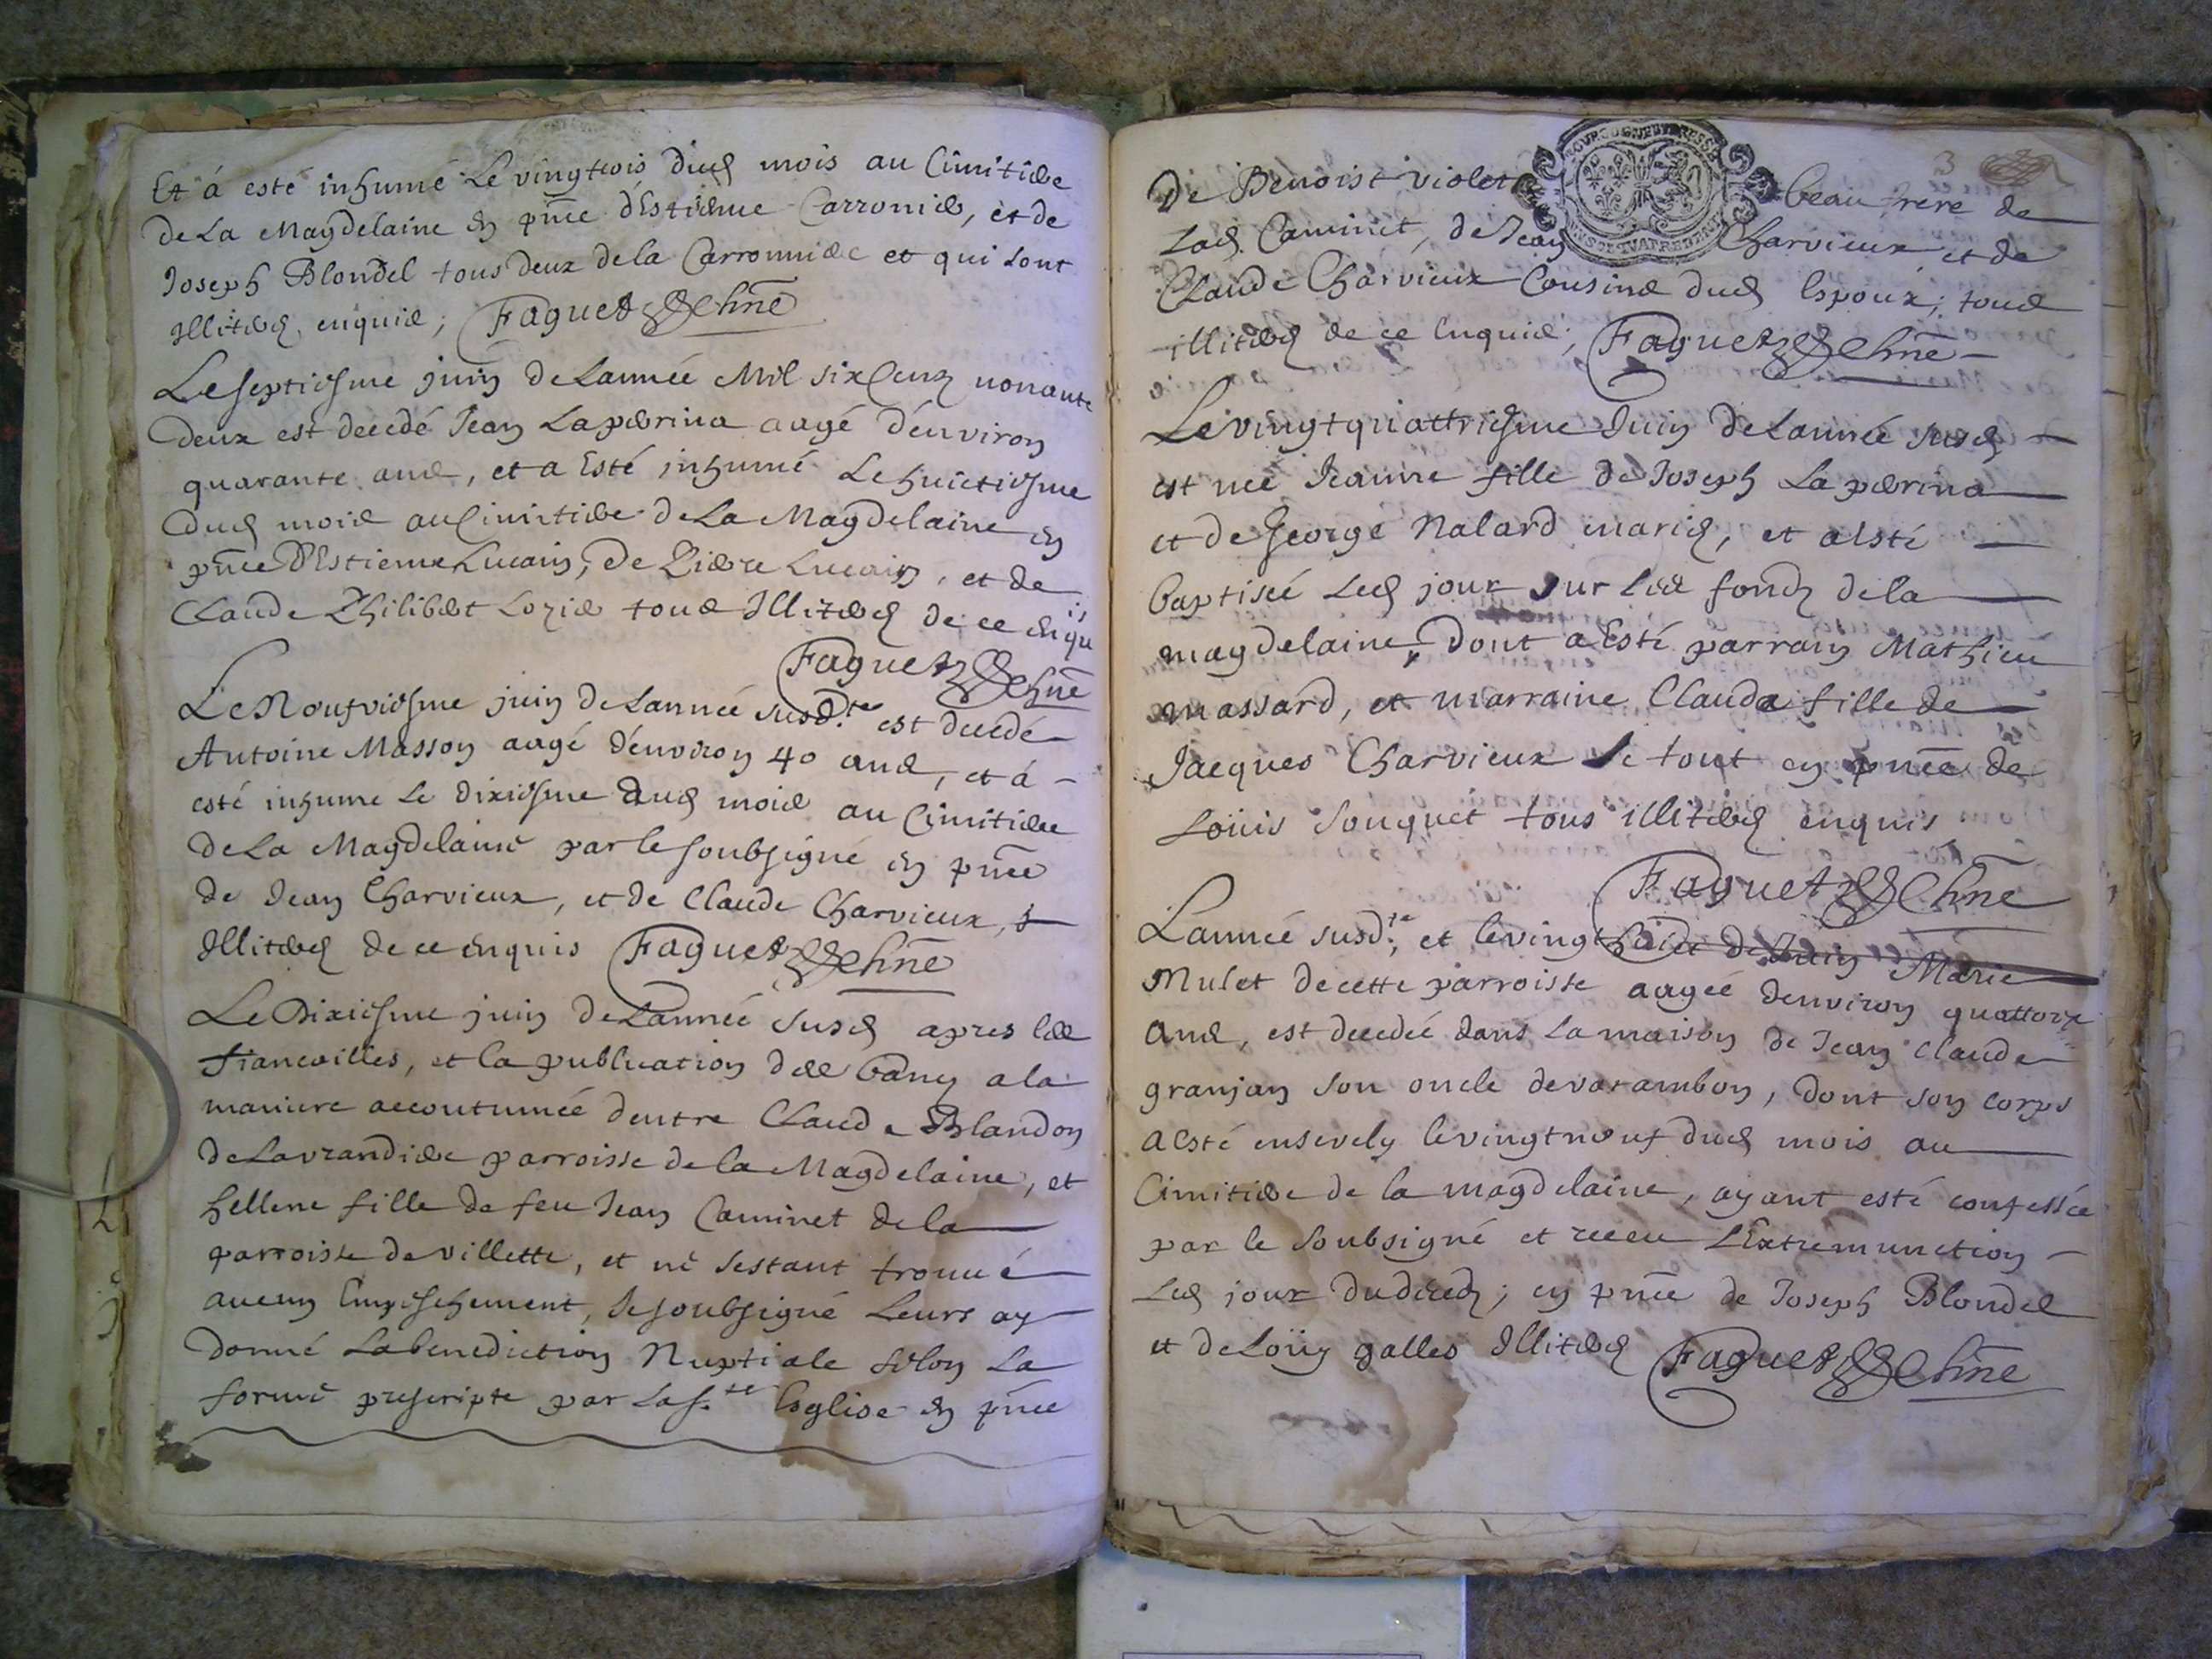 Et á esté inhumé Le vingtrois dud mois au Cimitiere
de La Magdelaine en pnce d'Estienne Carronier, et de
Joseph Blondel tous deux de la Carronniere et qui sont
Illiterés enquis; Faguet Chne
Le septiesme juin de Lannée Mil six Cens nonante
deux est decedé Jean Laperrina aagé d'environ
quarante ans, et a Esté inhumé Le huictiesme
dud mois au Cimitiere de La Magdelaine en
pnce d'Estienne Lucain, de Pierre Lucain, et de
Claude Philibert tous Illiterés de ce enquis
Faguet Chne
Le Neufviesme juin de Lannée susd.te est decedé
Antoine Masson aagé d'environ 40 ans, et á
esté inhumé Le dixiesme dud mois au Cimitiere
de La Magdelaine par le soubsigné en pnce
de Jean Charvieux, et de Claude Charvieux,
Illiterés de ce enquis Faguet Chne
Le Dixiesme juin de Lannée susd apres les
fiancailles, et la publication des bans a la
maniere accoutumée dentre Claude Blandon
de Lavrandiere parroisse de la Magdelaine, et
hellene fille de feu Jean Caminet de la
parroisse de villette, et ne sestant trouué
aucun Empeschement, Je soubsigné Leurs ay
donné La benediction Nuptiale selon La
forme prescripte par La s.te Esglise en pnce
3
BOURGOGNE ET BRESSE
De Benoist violet beau frere de
Lad Caminet, de Jean Charvieux et de
Claude Charvieux Cousins dud Espoux; tous
illiterés de ce Enquis; Faguet Chne
Le vingt quattriesme Juin de Lannée susd
est née Jeanne fille de Joseph Laperrina
et de George Nalard mariés, et a Esté
baptisée Led jour sur Les fonds de la
magdelaine, Dont a Esté parrain Mathieu
massard, et marraine Clauda fille de
Jacques Charvieux le tout en pnce de
Loüis Souquet tous illiterés enquis
Faguet Chne
Lannée susd.te, et le vingt huict de Juin Marie
Mulet de cette parroisse aagée denviron quattorze
ans, est decedée dans La maison de Jean Claude
granjan son oncle de varambon, dont son corps
a Esté ensevely le vingt neuf dud mois au
Cimitiere de la magdelaine, ayant esté confessée
par le soubsigné et receu L'Extremunction
Led jour du deceds; en pnce de Joseph Blondel
et de Loüis galles Illiterés Faguet Chne